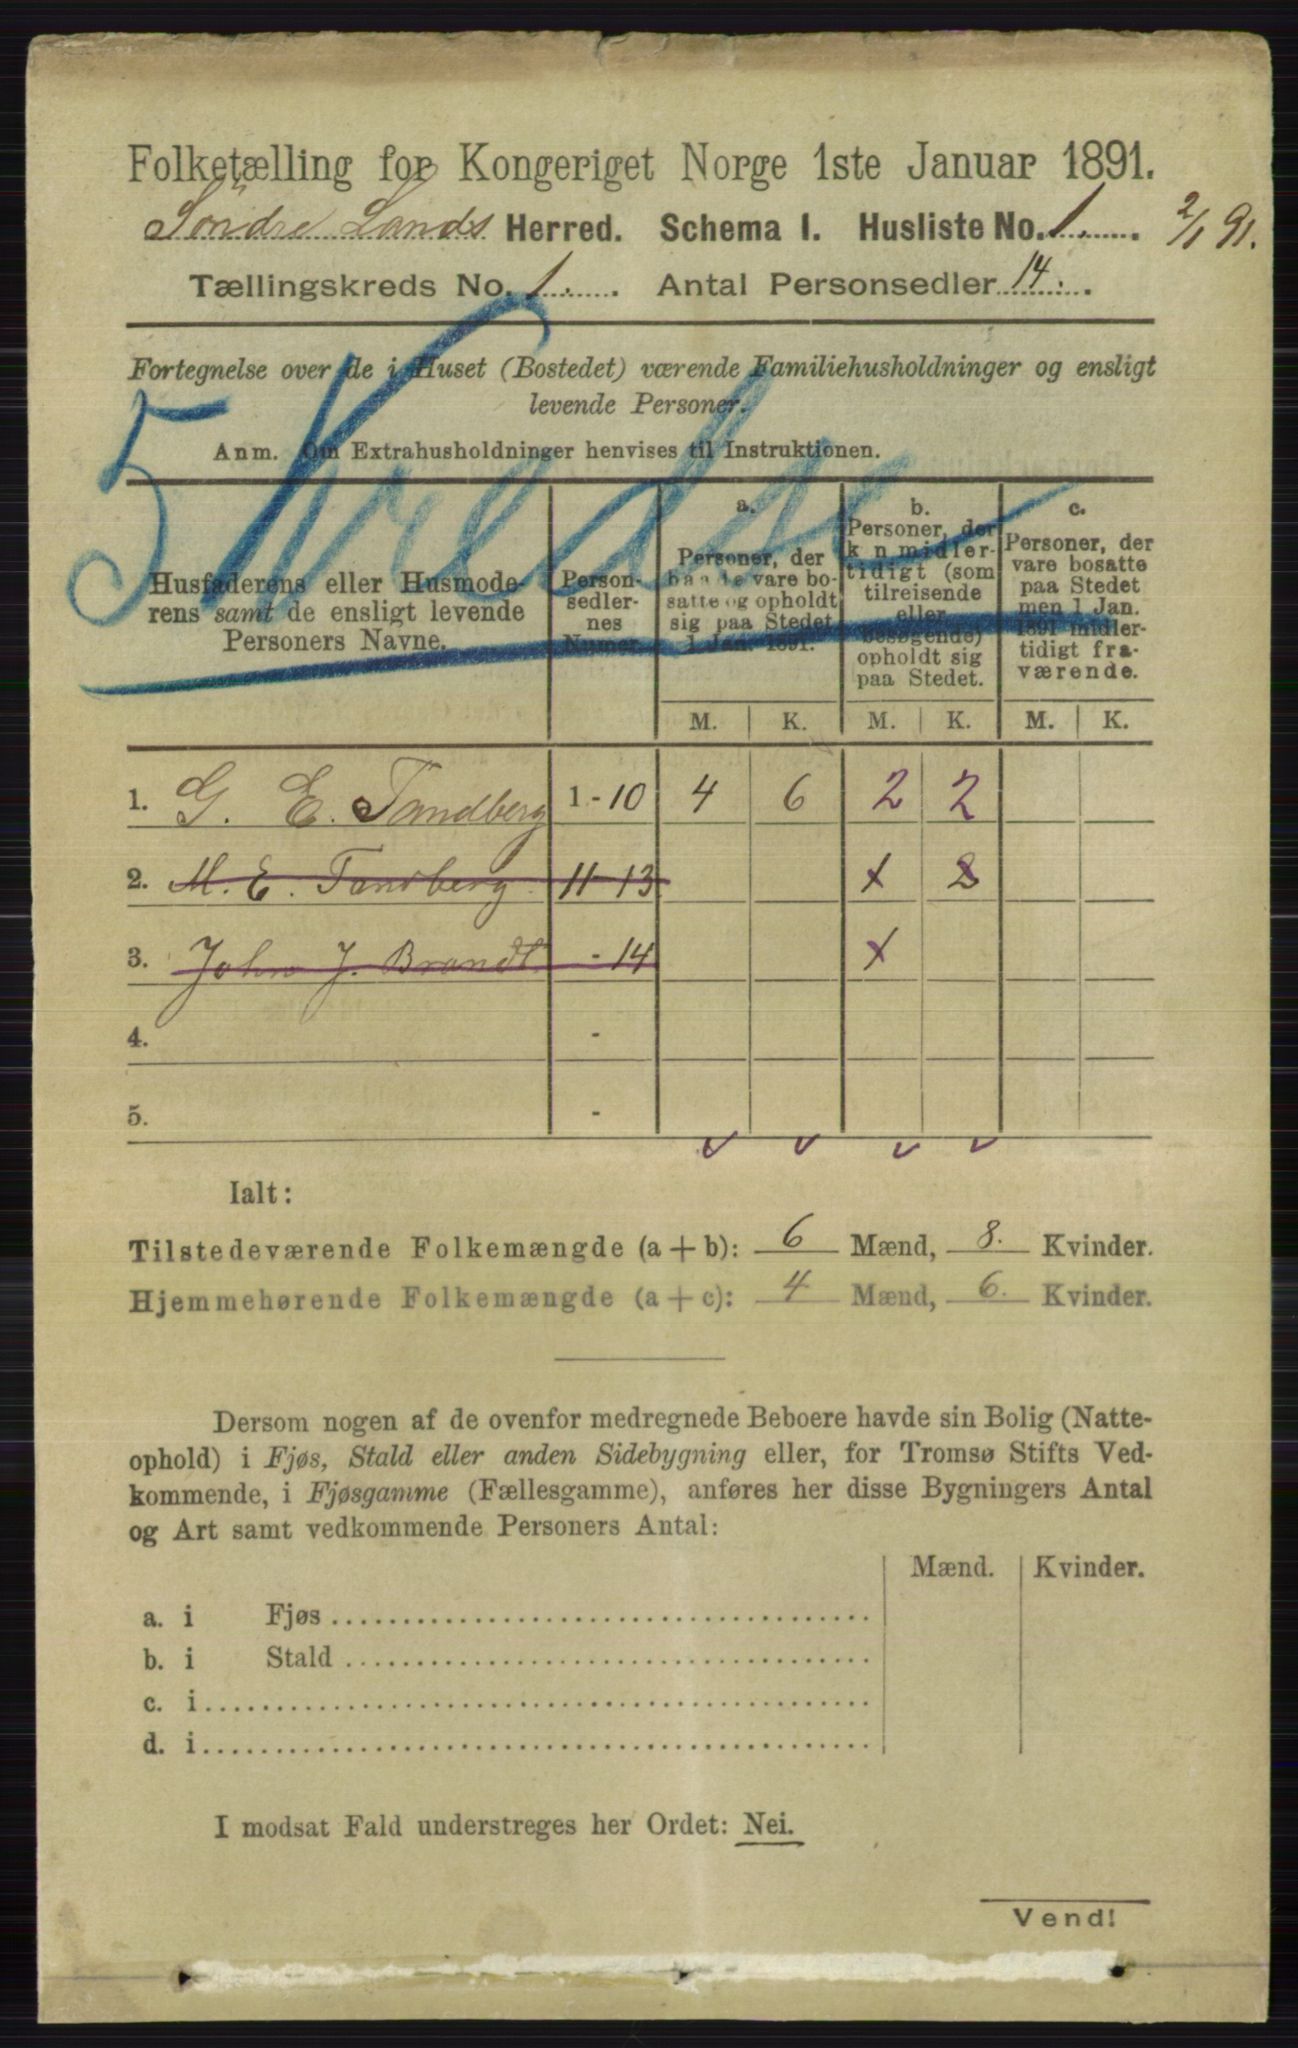 Folketælling for Kongeriget Norge 1ste Januar 1891.
Söndre Lands Herred. Schema I. Husliste No. 1. 2/1 91.
Tællingskreds No. 1. Antal Personsedler 14.
Fortegnelse over de i Huset (Bostedet) værende Familiehusholdninger og ensligt
levende Personer.
Anm. Om Extrahusholdninger henvises til Instruktionen.
5 Kredse
Husfaderens eller Husmode-
rens samt de ensligt levende
Personers Navne.
Person-
sedler-
nes
Numer.
a.
Personer, der
baade vare bo-
satte og opholdt
sig paa Stedet
1 Jan. 1891.
b.
Personer, der
kun midler-
tidigt (som
tilreisende
eller
besøgende)
opholdt sig
paa Stedet.
c.
Personer, der
vare bosatte
paa Stedet
men 1 Jan.
1891 midler-
tidigt fra-
værende.
M. K. M. K. M. K.
1. G. E. Tandberg 1-10 4 6 2 2
2. M. E. Tandberg 11-13 1 2
3. John J. Brandt -14 1
4. -
5. -
Ialt:
Tilstedeværende Folkemængde (a + b): 6 Mænd, 8. Kvinder.
Hjemmehørende Folkemængde (a + c): 4 Mænd, 6. Kvinder.
Dersom nogen af de ovenfor medregnede Beboere havde sin Bolig (Natte-
ophold) i Fjøs, Stald eller anden Sidebygning eller, for Tromsø Stifts Ved-
kommende, i Fjøsgamme (Fællesgamme), anføres her disse Bygningers Antal
og Art samt vedkommende Personers Antal:
Mænd. Kvinder.
a. i Fjøs
b. i Stald
c. i
d. i
I modsat Fald understreges her Ordet: Nei.
Vend!